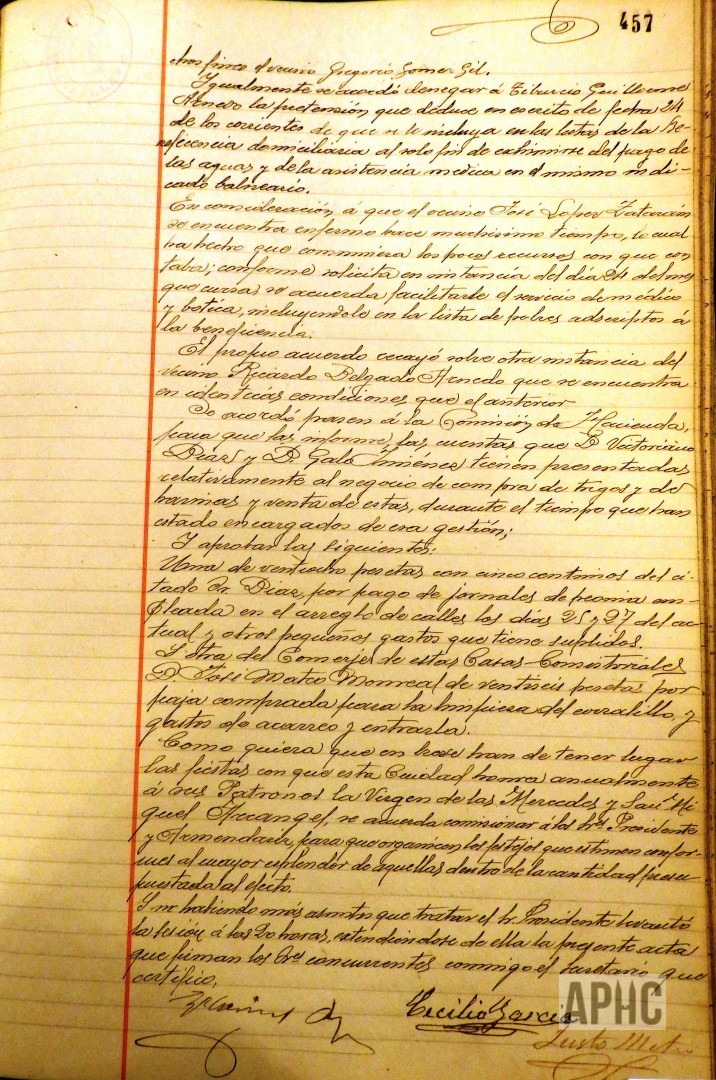 457
vecino Gregorio Gomez Gil.
Ygualmente se acordó denegar á Tiburcio Guillorme
Arnedo la pretensión que deduce en escrito de fecha 24
de los corrientes de que se le incluya en las listas de la Be-
neficencia domiciliaria al solo fin de exhimirse del pago de
las aguas y de la asistencia médica en el mismo indi-
cado balneario.
En consideración á que el vecino José Lopez
se encuentra enfermo hace muchisimo tiempo, lo cual
ha hecho que consumiera los pocos recursos con que con
taba; conforme solicita en instancia del día 24 del mes
que cursa, se acuerda facilitarle el servicio de médico
y botica, incluyendole en la lista de pobres adscriptos á
la beneficencia.
El propio acuerdo recayó sobre otra instancia del
vecino Ricardo Delgado Arnedo que se encuentra
en identicas condiciones que el anterior.
Se acordó pasen á la Comisión de Hacienda,
para que las informe, las cuentas que D. Victoriano
Diaz y D. Galo Jiménez tienen presentadas
relativamente al negocio de compra de trigos y de
harinas y venta de estas, durante el tiempo que han
estado encargados de esa gestión;
Y aprobar las siguientes:
Una de ventiocho pesetas con cinco centimos del ci-
tado Sr. Diaz, por pago de jornales de peonia em-
pleada en el arreglo de calles los días 25 y 27 del ac-
tual y otros pequeños gastos que tiene suplidos.
Y otra del Conserje de estas Casas-Consistoriales
D. José Mateo Monreal de ventiseis pesetas por
paja comprada para la limpieza del corralillo, y
gastos de acarreo y entrarla.
Como quiera que en breve han de tener lugar
las fiestas con que esta Ciudad honra anualmente
á sus Patronos la Virgen de las Mercedes y San Mi-
guel Arcangel, se acuerda comisionar á los Sres. Presidente
y Armendariz, para que organicen los festejos que estimen confor-
mes al mayor esplendor de aquellas dentro de la cantidad presu-
puestada al efecto.
Y no habiendo más asuntos que tratar el Sr. Presidente levantó
la sesion á las 20 horas, extendiendose de ella la presente acta
que firman los Sres. concurrentes conmigo el Secretario que
certifico.
Cecilio Garcia
Justo Mateo
APHC